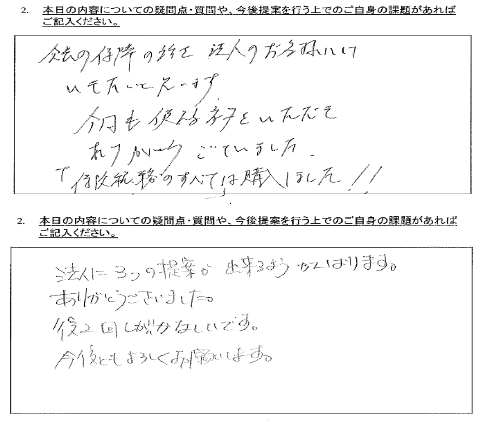 2. 本日の内容についての疑問点・質問や、今後提案を行う上でのご自身の課題があれば
ご記入ください。
会社の保障の話を 法人のお客様にして
いきたいと思います
今月も 保険 をいただき
ありがとう ございました.
「保険税務のすべては購入しました!!
2. 本日の内容についての疑問点・質問や、今後提案を行う上でのご自身の課題があれば
ご記入ください。
法人に3つの提案が 出来るよう がんばります。
ありがとうございました。
後2回しかがかなしいです。
今後ともよろしくお願いします。